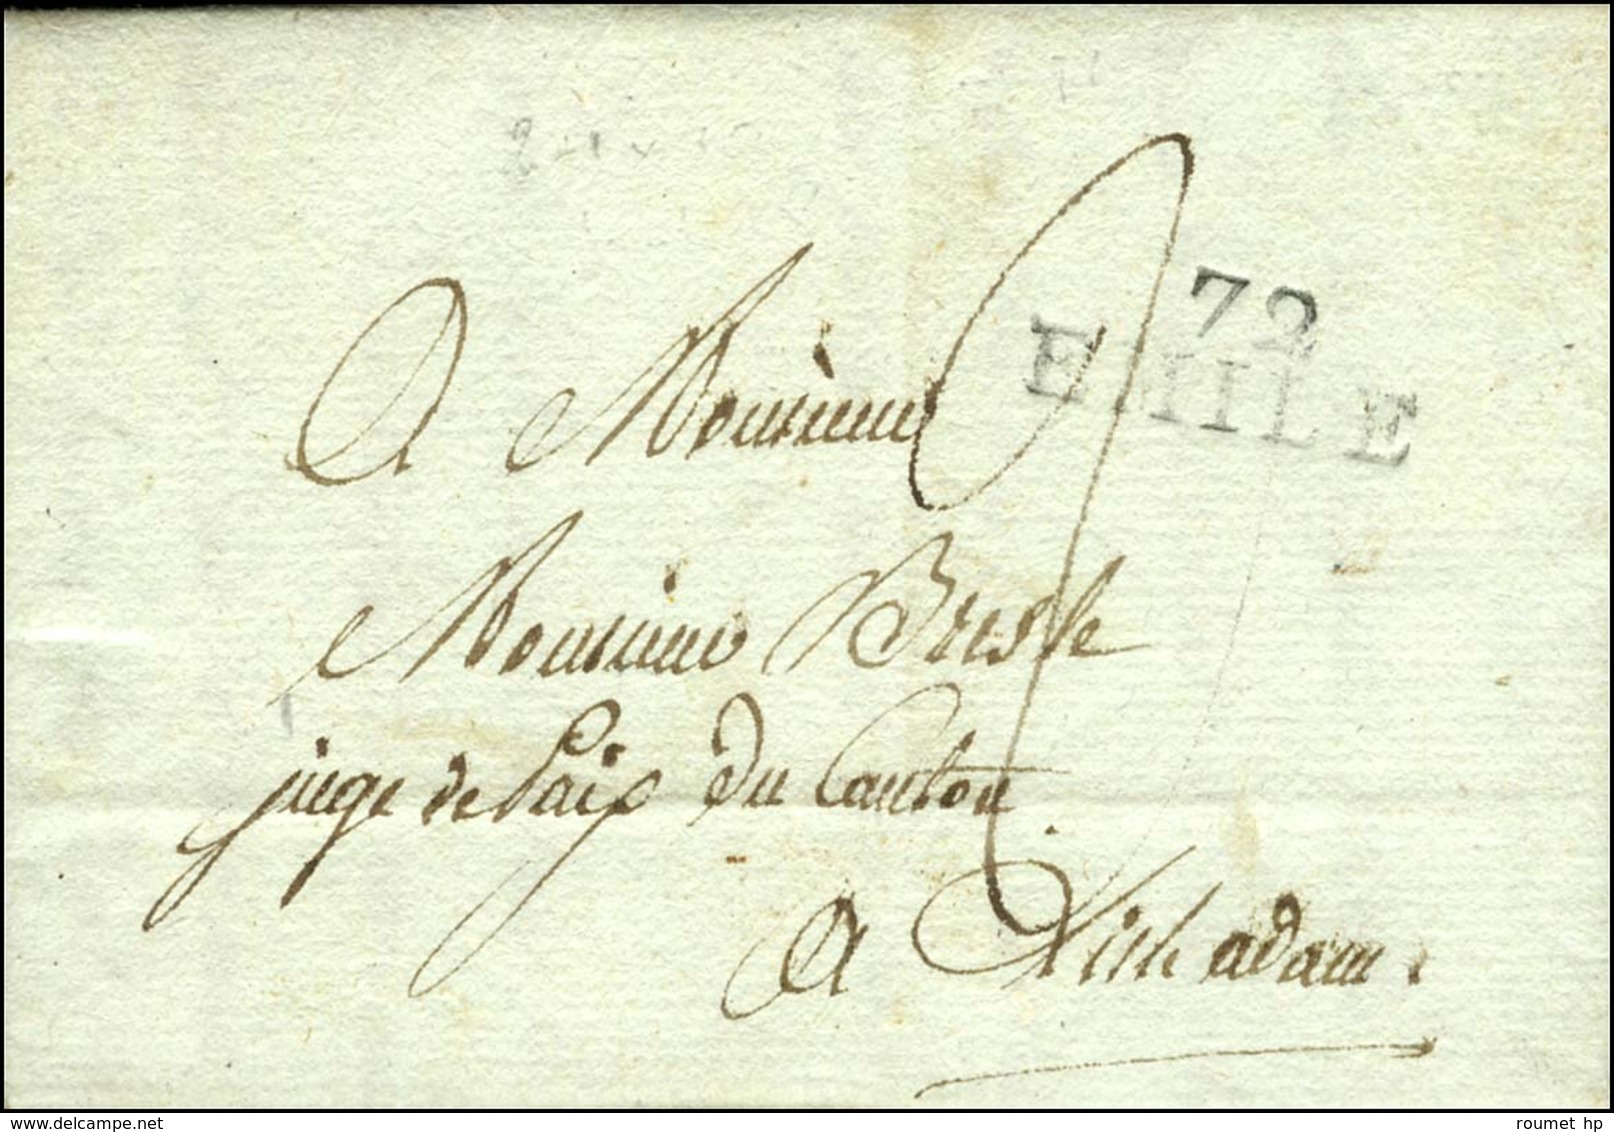 72
EMILE
A Monsieur
Monsieur
juge de Paix du Canton
A L'isle adam
delcampe.net
roumet hp